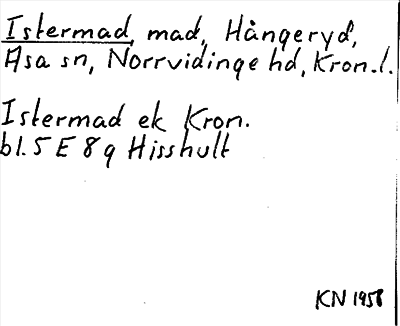 Istermad, mad, Hångeryd,
Asa sn, Norrvidinge hd, Kron.l.
Istermad ek Kron.
bl. 5 E 8 g Hisshult
KN 1958